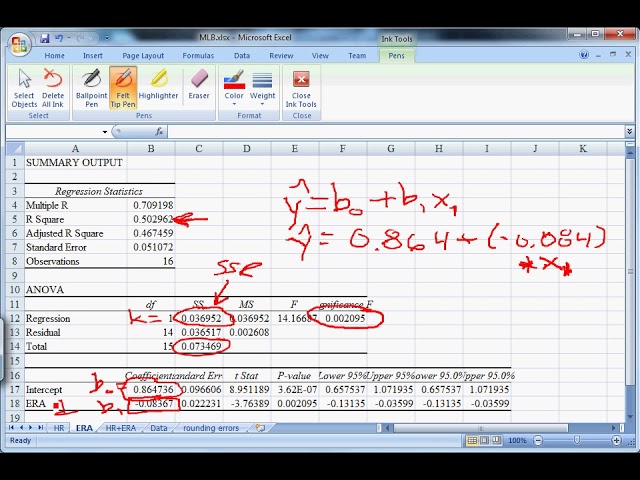 MLB.xlsx - Microsoft Excel
Ink Tools
Home Insert Page Layout Formulas Data Review View Developer Pens
Select Objects
Delete All Ink
Ballpoint Pen
Felt Tip Pen
Highlighter
Eraser
Color
Weight
Close Ink Tools
Select Pens Format Close
A B C D E F G H I J
1 SUMMARY OUTPUT
2
3 Regression Statistics
4 Multiple R 0.709198
5 R Square 0.502962
6 Adjusted R Square 0.467459
7 Standard Error 0.051072
8 Observations 16
ŷ = b₀ + b₁ x₁
ŷ = 0.864 + (-0.084)
* x₁ *
SSR
9
10 ANOVA
11 df SS MS F gnificance F
12 Regression k = 1 0.036952 0.036952 14.16687 0.002095
13 Residual 14 0.036517 0.002608
14 Total 15 0.073469
15
16 Coefficients tandard Err t Stat P-value Lower 95% Upper 95% ower 95.0% pper 95.0%
17 Intercept b₀ = 0.864736 0.096606 8.951189 3.62E-07 0.657537 1.071935 0.657537 1.071935
18 ERA b₁ -0.08367 0.022231 -3.76389 0.002095 -0.13135 -0.03599 -0.13135 -0.03599
19
HR ERA HR+ERA Data rounding errors
Ready 100%